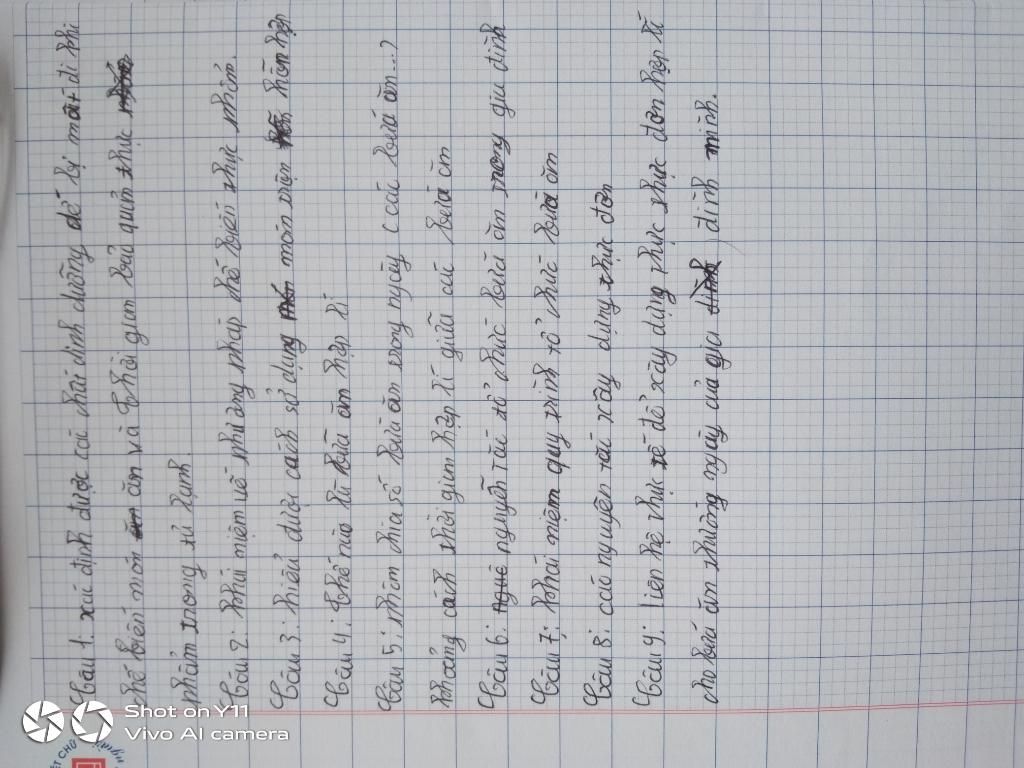 Câu 1: xác định được các chất dinh dưỡng dễ bị mất đi khi
chế biến món ăn và thời gian bảo quản thực
phẩm trong tủ lạnh.
Câu 2: khái niệm về phương pháp chế biến thực phẩm.
Câu 3: hiểu được cách sử dụng món trộn hỗn hợp
Câu 4: thế nào là bữa ăn hợp lí
Câu 5: nhóm chia số bữa ăn trong ngày (các bữa ăn...?
khoảng cách thời gian hợp lí giữa các bữa ăn
Câu 6: nguyên tắc tổ chức bữa ăn trong gia đình
Câu 7: khái niệm quy trình tổ chức bữa ăn
Câu 8: các nguyên tắc xây dựng thực đơn
Câu 9: liên hệ thực tế để xây dựng phực thực đơn hợp lí
cho bữa ăn thường ngày của gia đình mình.
Shot on Y11
Vivo AI camera